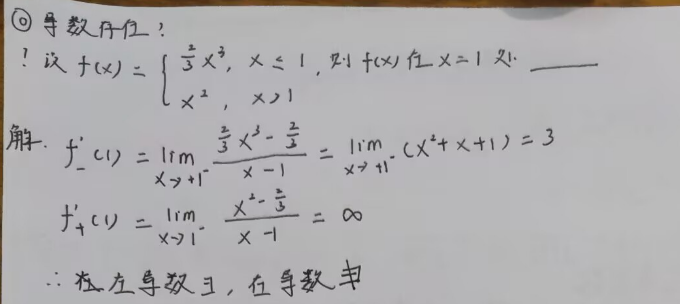 ◎ 导数存在?
! 设 f(x) = { 2/3 x³, x ≤ 1, x², x>1 则 f(x) 在 x=1 处 ____
解. f'₋(1) = lim x→+1⁻ (2/3 x³ - 2/3)/(x-1) = lim x→+1⁻ (x²+x+1) = 3
f'₊(1) = lim x→1⁻ (x² - 2/3)/(x-1) = ∞
∴ 左导数∃, 在导数∄